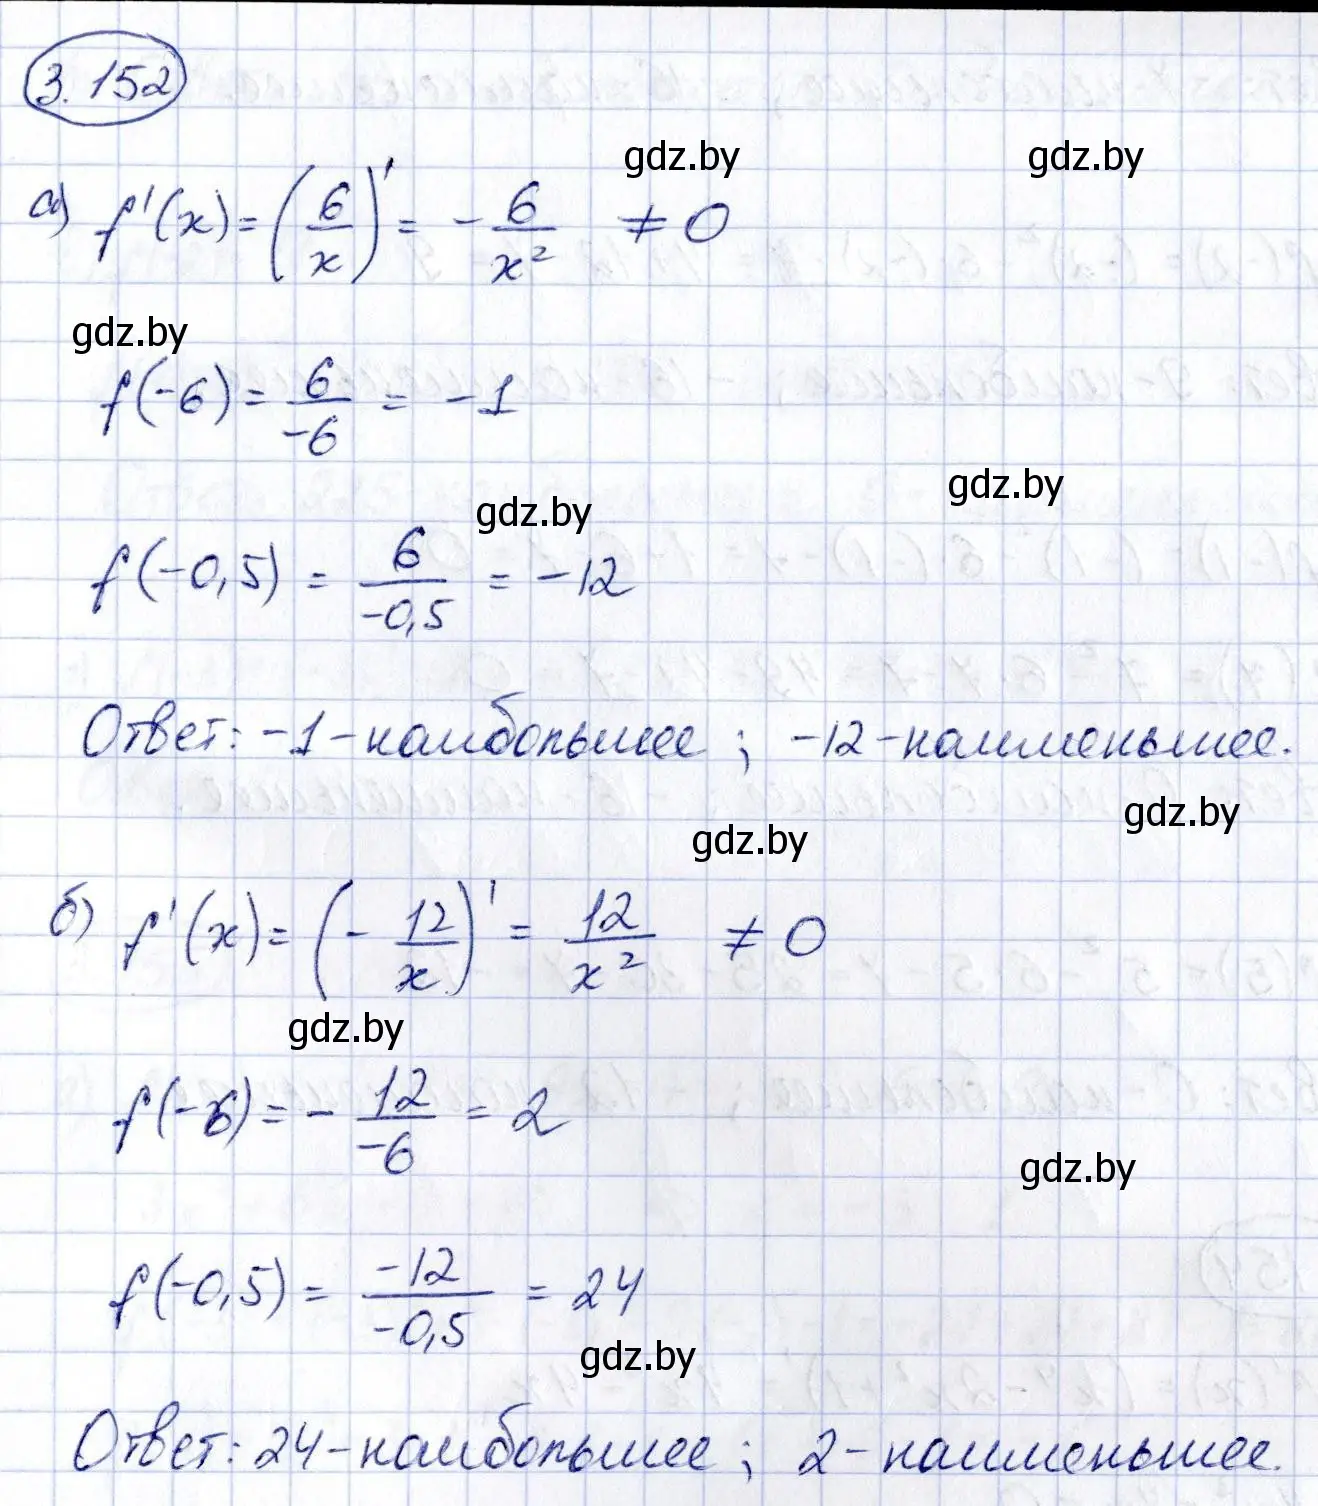 3.152
gdz.by gdz.by
а) f'(x) = (6/x)' = -6/x² ≠ 0
gdz.by
f(-6) = 6/-6 = -1
gdz.by gdz.by
f(-0,5) = 6/-0,5 = -12
Ответ: -1 - наибольшее ; -12 - наименьшее.
gdz.by gdz.by
б) f'(x) = (-12/x)' = 12/x² ≠ 0
gdz.by
f(-6) = -12/-6 = 2
gdz.by
f(-0,5) = -12/-0,5 = 24
gdz.by
Ответ: 24 - наибольшее ; 2 - наименьшее.